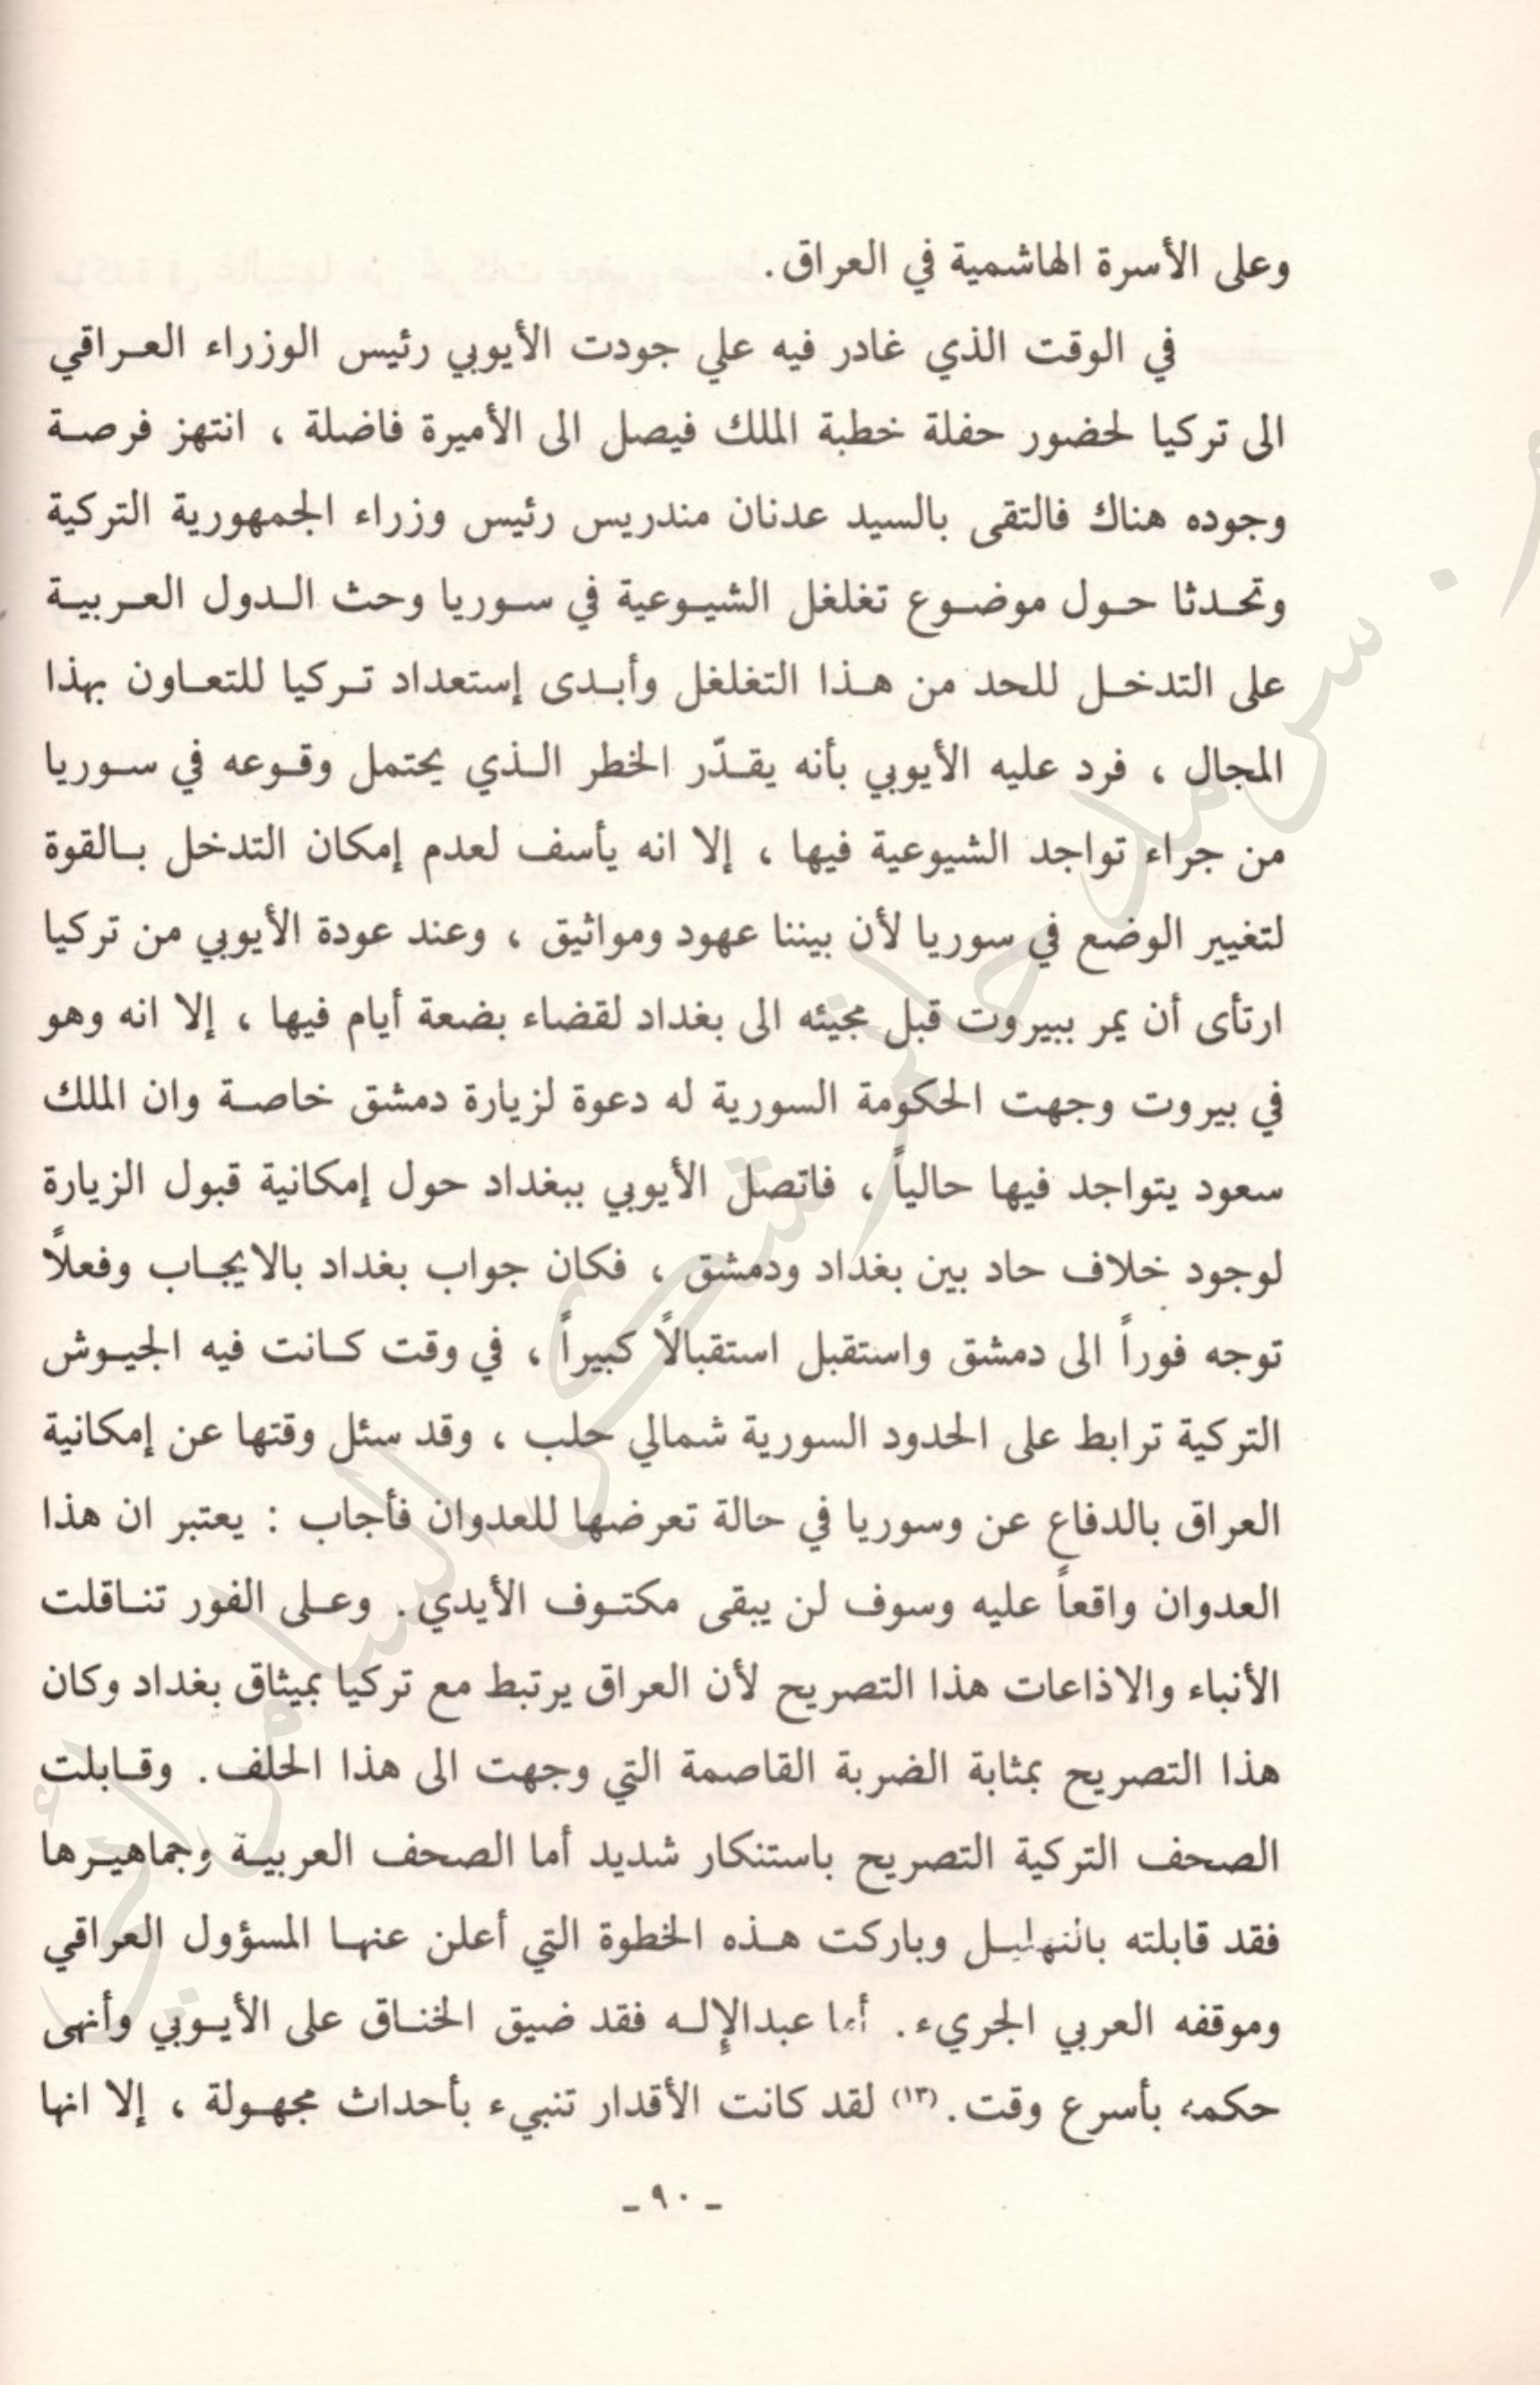 وعلى الأسرة الهاشمية في العراق.
في الوقت الذي غادر فيه علي جودت الأيوبي رئيس الوزراء العراقي
الى تركيا لحضور حفلة خطبة الملك فيصل الى الأميرة فاضلة ، انتهز فرصة
وجوده هناك فالتقى بالسيد عدنان مندريس رئيس وزراء الجمهورية التركية
وتحدثا حول موضوع تغلغل الشيوعية في سوريا وحث الدول العربية
على التدخل للحد من هذا التغلغل وأبدى إستعداد تركيا للتعاون بهذا
المجال ، فرد عليه الأيوبي بأنه يقدّر الخطر الذي يحتمل وقوعه في سوريا
من جراء تواجد الشيوعية فيها ، إلا انه يأسف لعدم إمكان التدخل بالقوة
لتغيير الوضع في سوريا لأن بيننا عهود ومواثيق ، وعند عودة الأيوبي من تركيا
ارتأى أن يمر ببيروت قبل مجيئه الى بغداد لقضاء بضعة أيام فيها ، إلا انه وهو
في بيروت وجهت الحكومة السورية له دعوة لزيارة دمشق خاصة وان الملك
سعود يتواجد فيها حالياً ، فاتصل الأيوبي ببغداد حول إمكانية قبول الزيارة
لوجود خلاف حاد بين بغداد ودمشق ، فكان جواب بغداد بالايجاب وفعلاً
توجه فوراً الى دمشق واستقبل استقبالاً كبيراً ، في وقت كانت فيه الجيوش
التركية ترابط على الحدود السورية شمالي حلب ، وقد سئل وقتها عن إمكانية
العراق بالدفاع عن وسوريا في حالة تعرضها للعدوان فأجاب : يعتبر ان هذا
العدوان واقعاً عليه وسوف لن يبقى مكتوف الأيدي. وعلى الفور تناقلت
الأنباء والاذاعات هذا التصريح لأن العراق يرتبط مع تركيا بميثاق بغداد وكان
هذا التصريح بمثابة الضربة القاصمة التي وجهت الى هذا الحلف. وقابلت
الصحف التركية التصريح باستنكار شديد أما الصحف العربية وجماهيرها
فقد قابلته بالتهليل وباركت هذه الخطوة التي أعلن عنها المسؤول العراقي
وموقفه العربي الجريء. أما عبدالإله فقد ضيق الخناق على الأيوبي وأنهى
حكمه بأسرع وقت. (١٣) لقد كانت الأقدار تنبيء بأحداث مجهولة ، إلا انها
ـ ٩٠ ـ